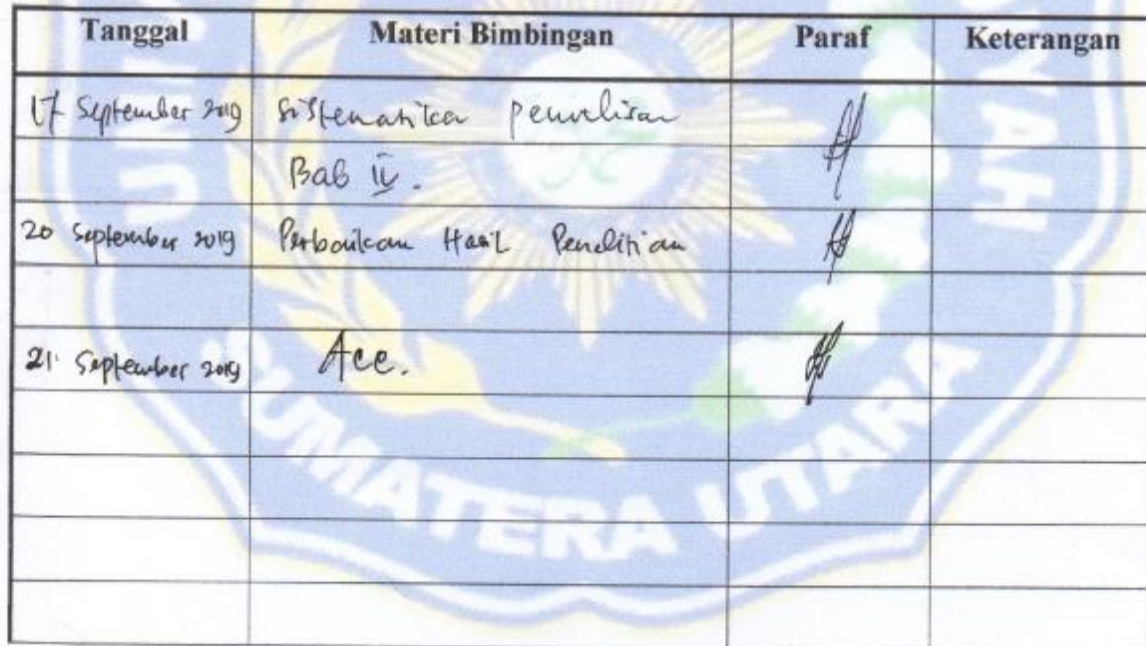 Tanggal Materi Bimbingan Paraf Keterangan
17 September 2019 Sistematika penulisan
Bab IV.
20 September 2019 Perbaikan Hasil Penelitian
21 September 2019 Acc.
SUMATERA UTARA